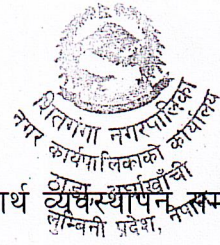 शितगंगा नगरपालिका
नगर कार्यपालिकाको कार्यालय
ठाडा अर्घाखाँची
र्थ व्यवस्थापन सम
लुम्बिनी प्रदेश, नेपाल